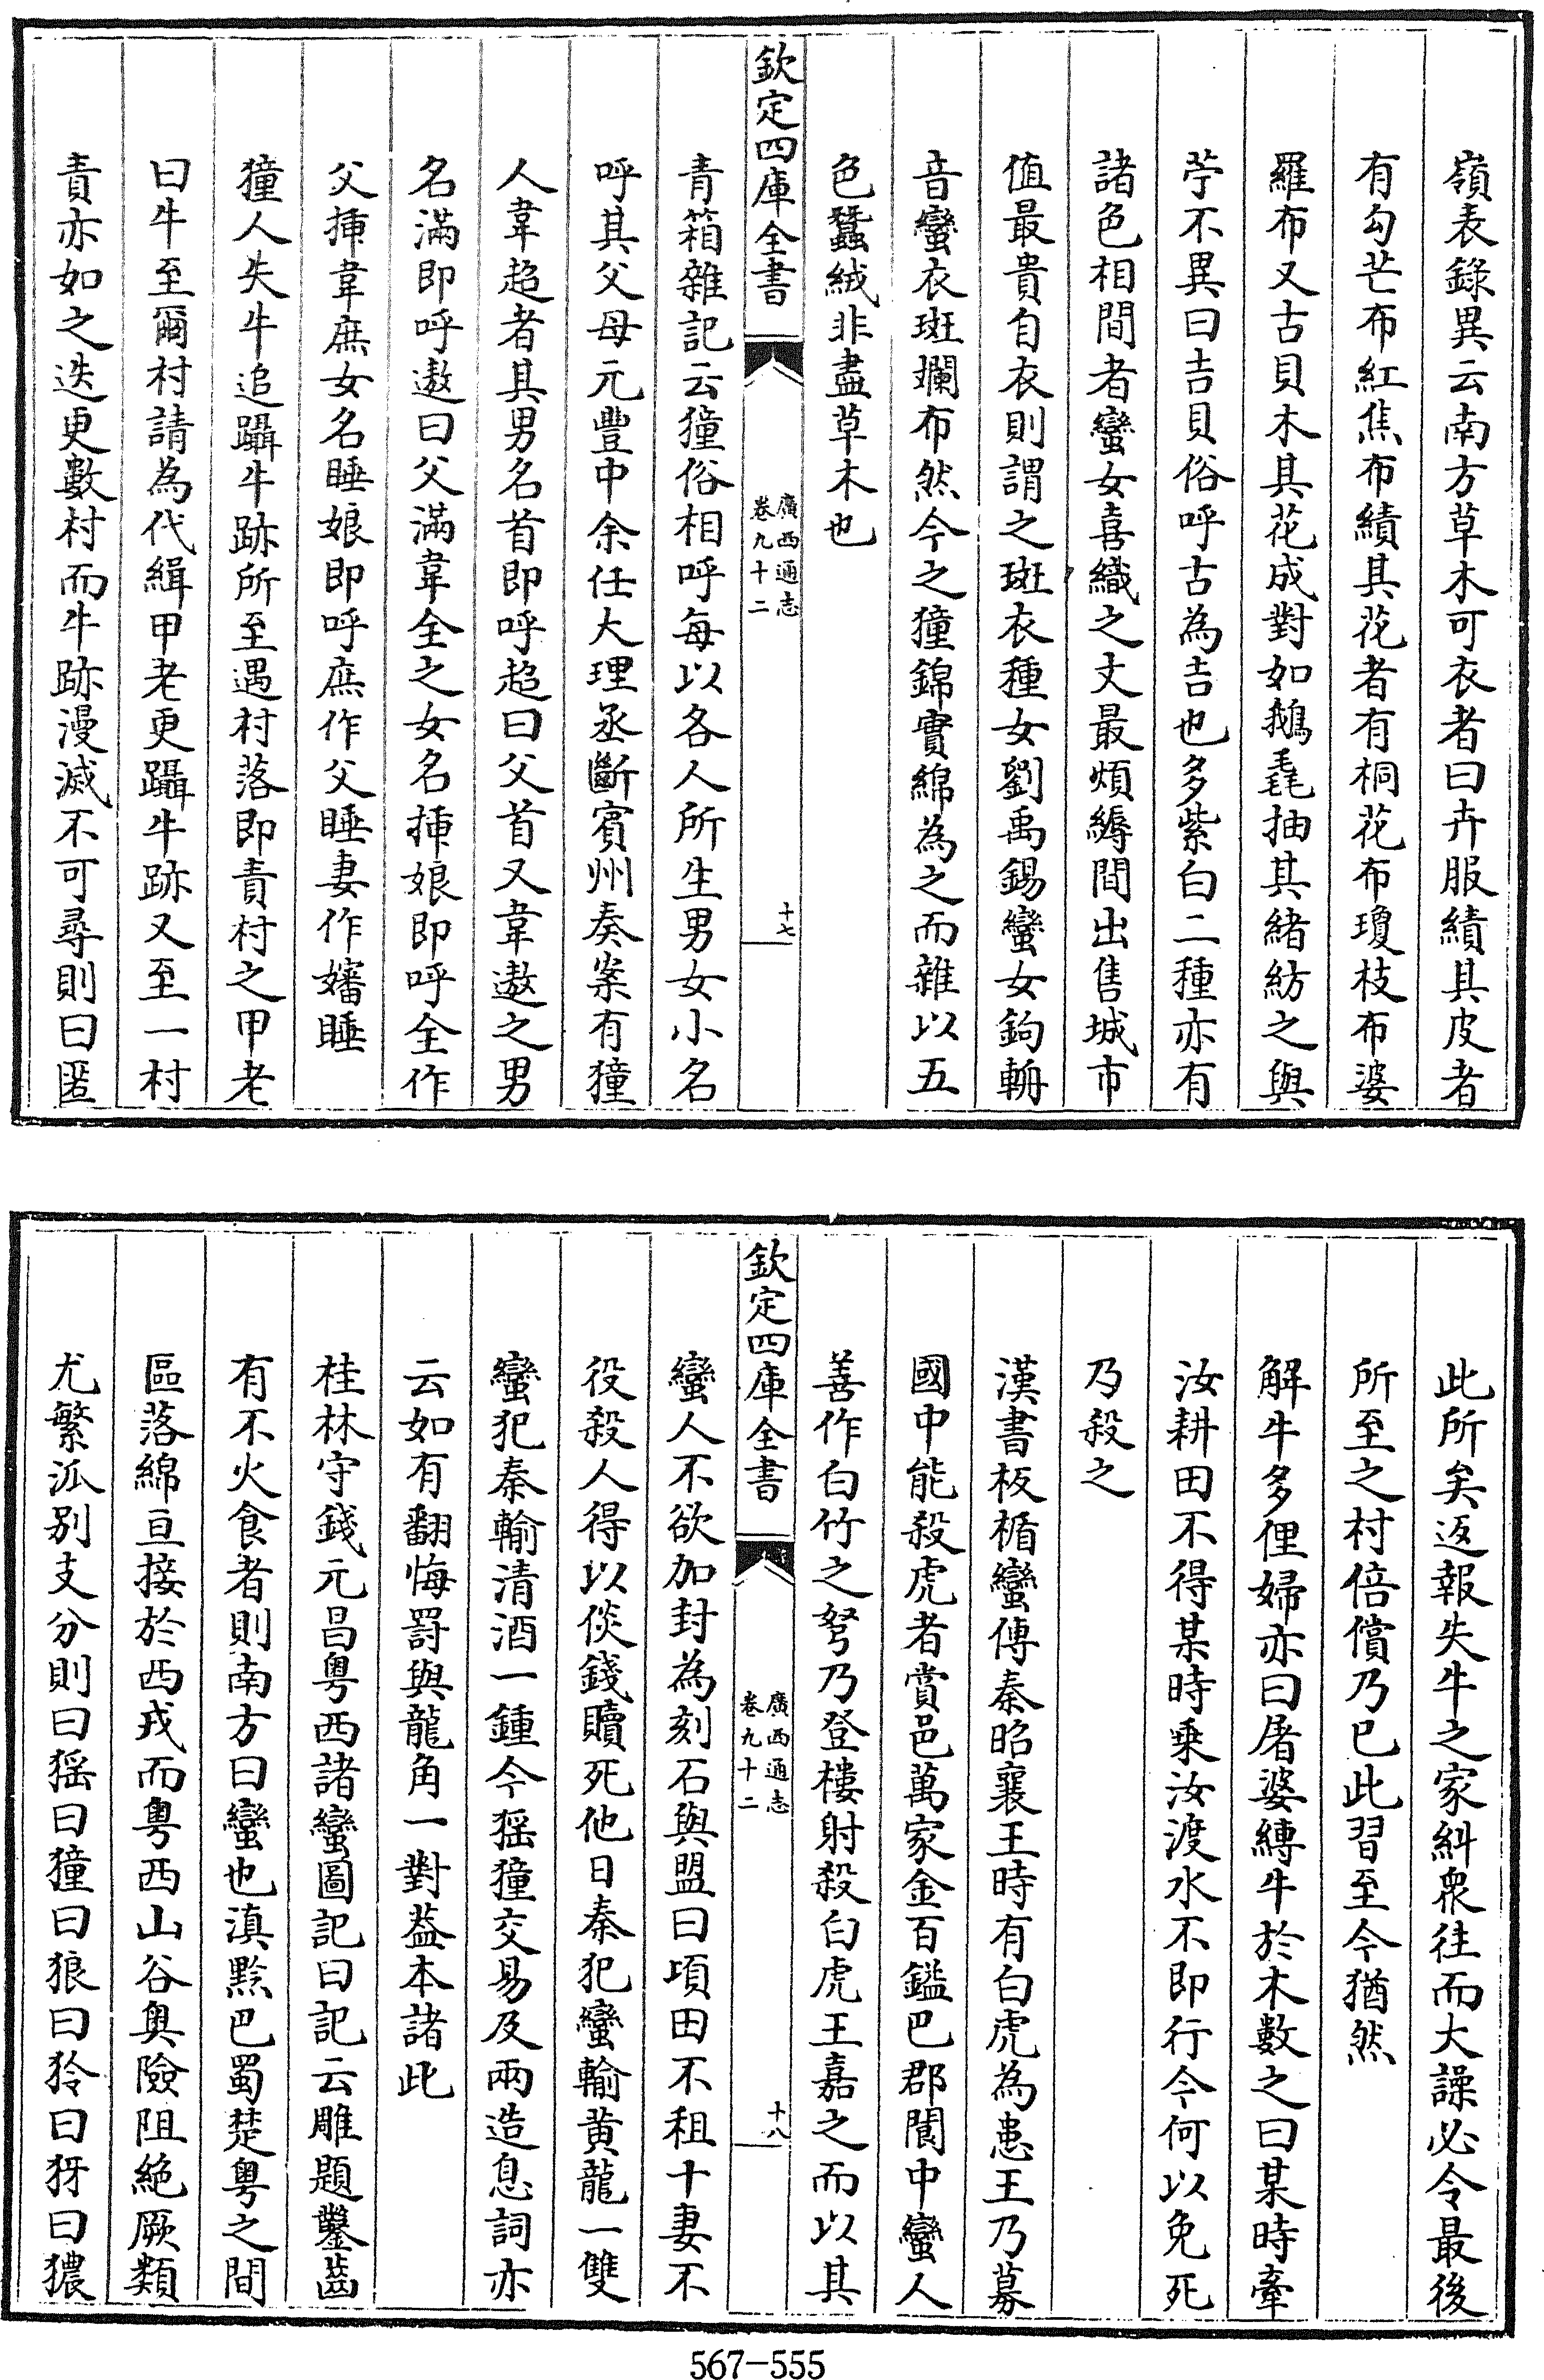 嶺表錄異云南方草木可衣者曰卉服績其皮者
有勾芒布紅焦布績其花者有桐花布瓊枝布婆
羅布又古貝木其花成對如鵝毳抽其緒紡之與
苧不異曰吉貝俗呼古為吉也多紫白二種亦有
諸色相間者蠻女喜織之丈最煩縟間出售城市
值最貴自衣則謂之斑衣種女劉禹錫蠻女鉤輈
音蠻衣斑斕布然今之獞錦實綿為之而雜以五
色蠶絨非盡草木也
欽定四庫全書
廣西通志
卷九十二
十七
青箱雜記云獞俗相呼每以各人所生男女小名
呼其父母元豐中余任大理丞斷賓州奏案有獞
人韋超者其男名首即呼超曰父首又韋遨之男
名滿即呼遨曰父滿韋全之女名揷娘即呼全作
父揷韋庶女名睡娘即呼庶作父睡妻作嬸睡
獞人失牛追躡牛跡所至遇村落即責村之甲老
曰牛至爾村請為代緝甲老更躡牛跡又至一村
責亦如之迭更數村而牛跡漫滅不可尋則曰匿
此所矣返報失牛之家糾衆往而大譟必令最後
所至之村倍償乃已此習至今猶然
解牛多俚婦亦曰屠婆縛牛於木數之曰某時牽
汝耕田不得某時乗汝渡水不即行今何以免死
乃殺之
漢書板楯蠻傳秦昭襄王時有白虎為患王乃募
國中能殺虎者賞邑萬家金百鎰巴郡閬中蠻人
善作白竹之弩乃登樓射殺白虎王嘉之而以其
欽定四庫全書
廣西通志
卷九十二
十八
蠻人不欲加封為刻石與盟曰頃田不租十妻不
役殺人得以倓錢贖死他日秦犯蠻輸黄龍一雙
蠻犯秦輸清酒一鍾今猺獞交易及兩造息詞亦
云如有翻悔罸與龍角一對葢本諸此
桂林守錢元昌粤西諸蠻圖記曰記云雕題鑿齒
有不火食者則南方曰蠻也滇黔巴蜀楚粤之間
區落綿亘接於西戎而粤西山谷奥險阻絶厥類
尤繁派别支分則曰猺曰獞曰狼曰狑曰犽曰獽
567-555